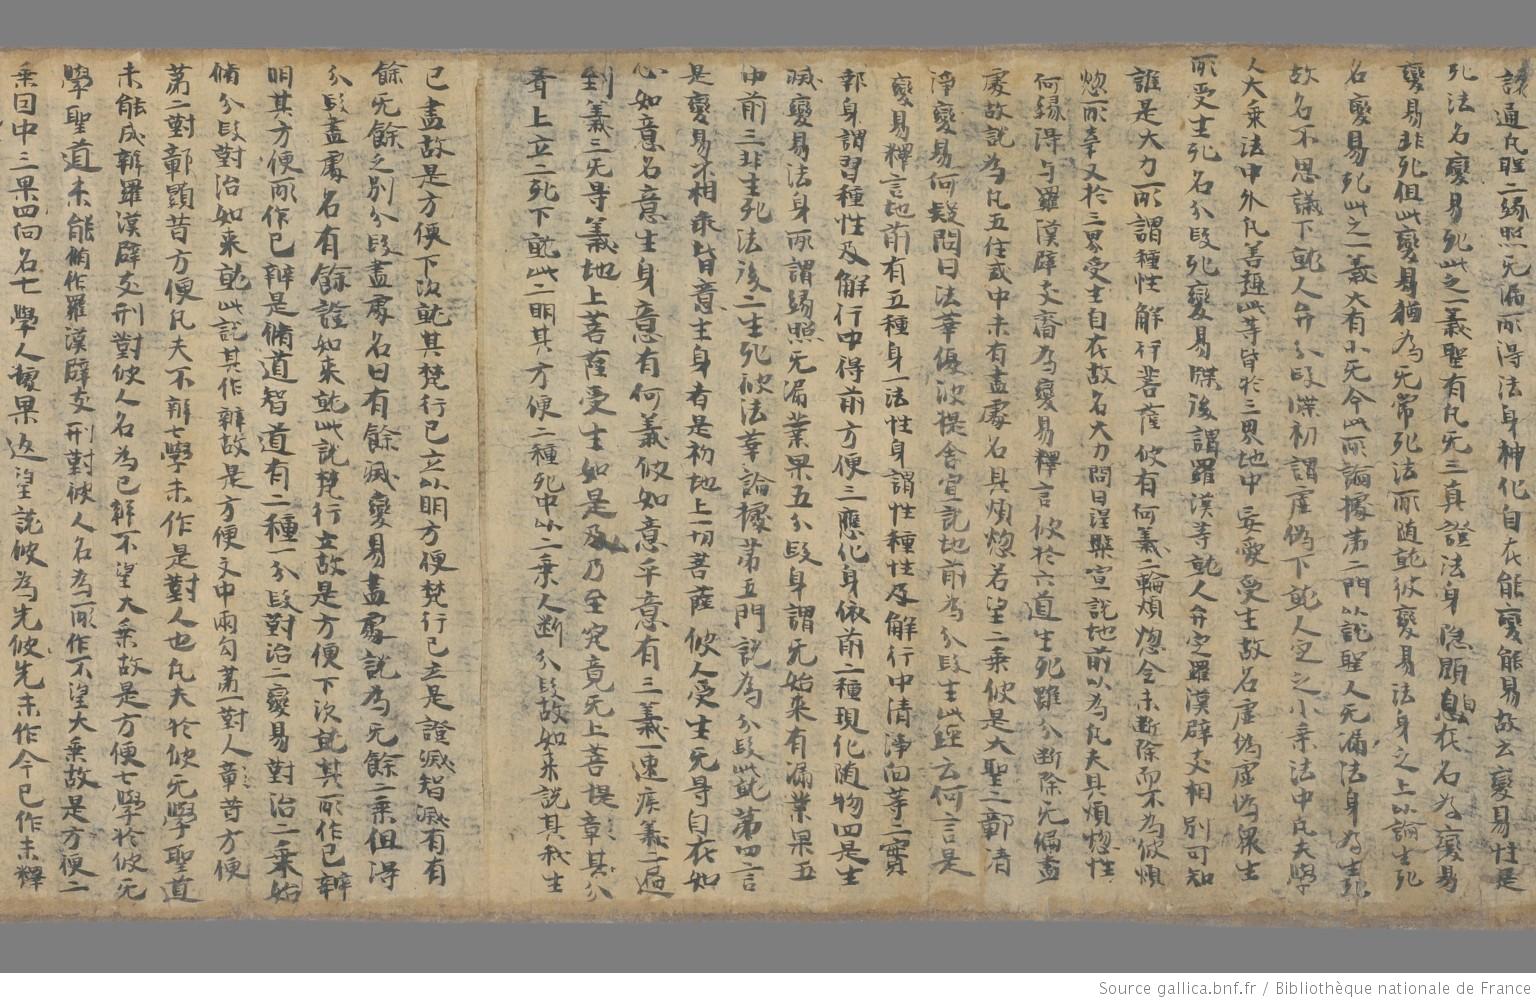 該通凡聖二緣照无漏所得法身神化自在能變能易故云變易性是
死法名變易死此之一義聖有凡无三真證法身隱顯自在名為變易
變易非死但此變易猶為无常死法所随就彼變易法身之上以論生死
名變易死此之一義大有小无今此所論據第二門以說聖人无漏法身為生死
故名不思議下就人弁分段牒初謂虛偽下就人定之小乘法中凡夫學
人大乘法中外凡善趣此等皆於三界地中妄愛受生故名虛偽虛偽眾生
所受生死名分段死變易牒後謂羅漢等就人弁定羅漢辟支相別可知
誰是大力所謂種性解行菩薩彼有何義二輪煩惱全未斷除而不為彼煩
惱所牽又於三界受生自在故名大力問曰涅槃宣說地前以為凡夫具煩惱性
何緣得与羅漢辟支齊為變易釋言彼於六道生死雖分斷除无偏盡
處故說為凡五住或中未有盡處名具煩惱若望二乘彼是大聖二鄣清
淨變易何疑問曰法華優波提舍宣說地前為分段生此經云何言是
變易釋言地前有五種身一法性身謂性種性及解行中清淨向等二實
報身謂習種性及解行中得前方便三應化身依前二種現化随物四是生
滅變易法身所謂緣照无漏業果五分段身謂无始來有漏業果五
中前三非生死法後二生死彼法華論據第五門說為分段此就第四言
是變易不相乖皆意生身者是初地上一切菩薩彼人受生无㝵自在如
心如意名意生身意有何義彼如意乎意有三義一速疾義二遍
到義三无㝵義地上菩薩受生如是及乃至究竟无上菩提章其分
齊上立二死下就此二明其方便二種死中以二乘人斷分段故如來說其我生
已盡故是方便下次就其梵行已立以明方便梵行已立是證滅智滅有有
餘无餘之別分段盡處名曰有餘滅變易盡處說為无餘二乘但得
分段盡處名有餘證如來就此說梵行立故是方便下次就其所作已辦
明其方便所作已辦是脩道智道有二種一分段對治二變易對治二乘始
脩分段對治如來就此說其作辦故是方便文中兩勾苐一對人彰昔方便
苐二對鄣顯昔方便凡夫不辦七學未作是對人也凡夫於彼无學聖道
未能成辦羅漢辟支刑對彼人名為已辦不望大乘故是方便七學於彼无
學聖道未能脩作羅漢辟支刑對彼人名為所作不望大乘故是方便二
乘曰中三果四向名七學人據果返望說彼為先彼先未作今已作未釋